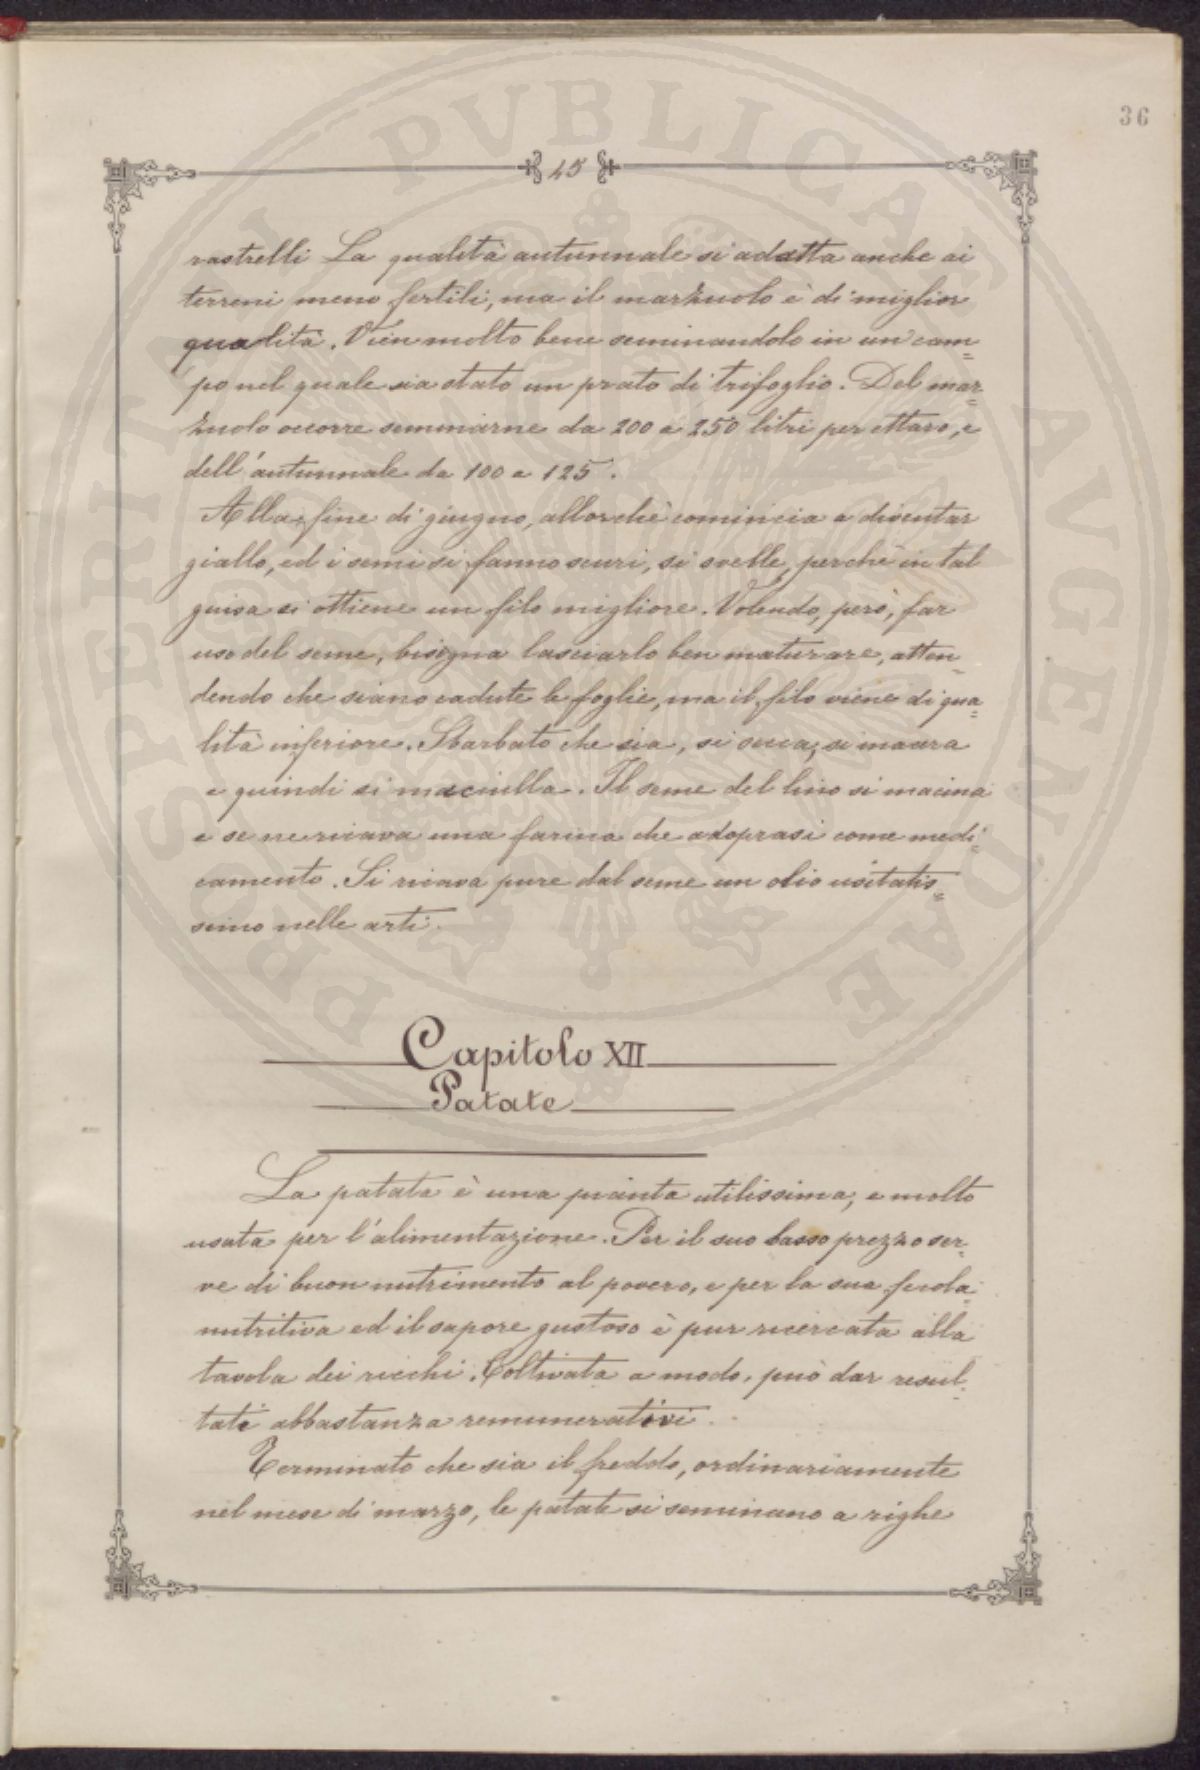 36
45
rastrelli La qualità autunnale si adatta anche ai
terreni meno fertili, ma il marzuolo è di miglior
qualità. Vien molto bene seminandolo in un cam=
po nel quale sia stato un prato di trifoglio. Del mar=
zuolo occorre seminarne da 200 a 250 litri per ettaro, e
dell'autunnale da 100 a 125.
Alla fine di giugno, allorchè comincia a diventar
giallo, ed i semi si fanno scuri, si svelle, perchè in tal
guisa si ottiene un filo migliore. Volendo, però, far
uso del seme, bisogna lasciarlo ben maturare, atten=
dendo che siano cadute le foglie, ma il filo viene di qua=
lità inferiore. Sbarbato che sia, si secca, si macera
e quindi si maciulla. Il seme del lino si macina
e se ne ricava una farina che adoprasi come medi=
camento. Si ricava pure dal seme un olio usitatis=
simo nelle arti.
Capitolo XII
Patate
La patata è una pianta utilissima, e molto
usata per l'alimentazione. Per il suo basso prezzo ser=
ve di buon nutrimento al povero, e per la sua fecola
nutritiva ed il sapore gustoso è pur ricercata alla
tavola dei ricchi. Coltivata a modo, può dar resul=
tati abbastanza remunerativi.
Terminato che sia il freddo, ordinariamente
nel mese di marzo, le patate si seminano a righe
PROSPERITATI PVBLICAE AVGENDAE